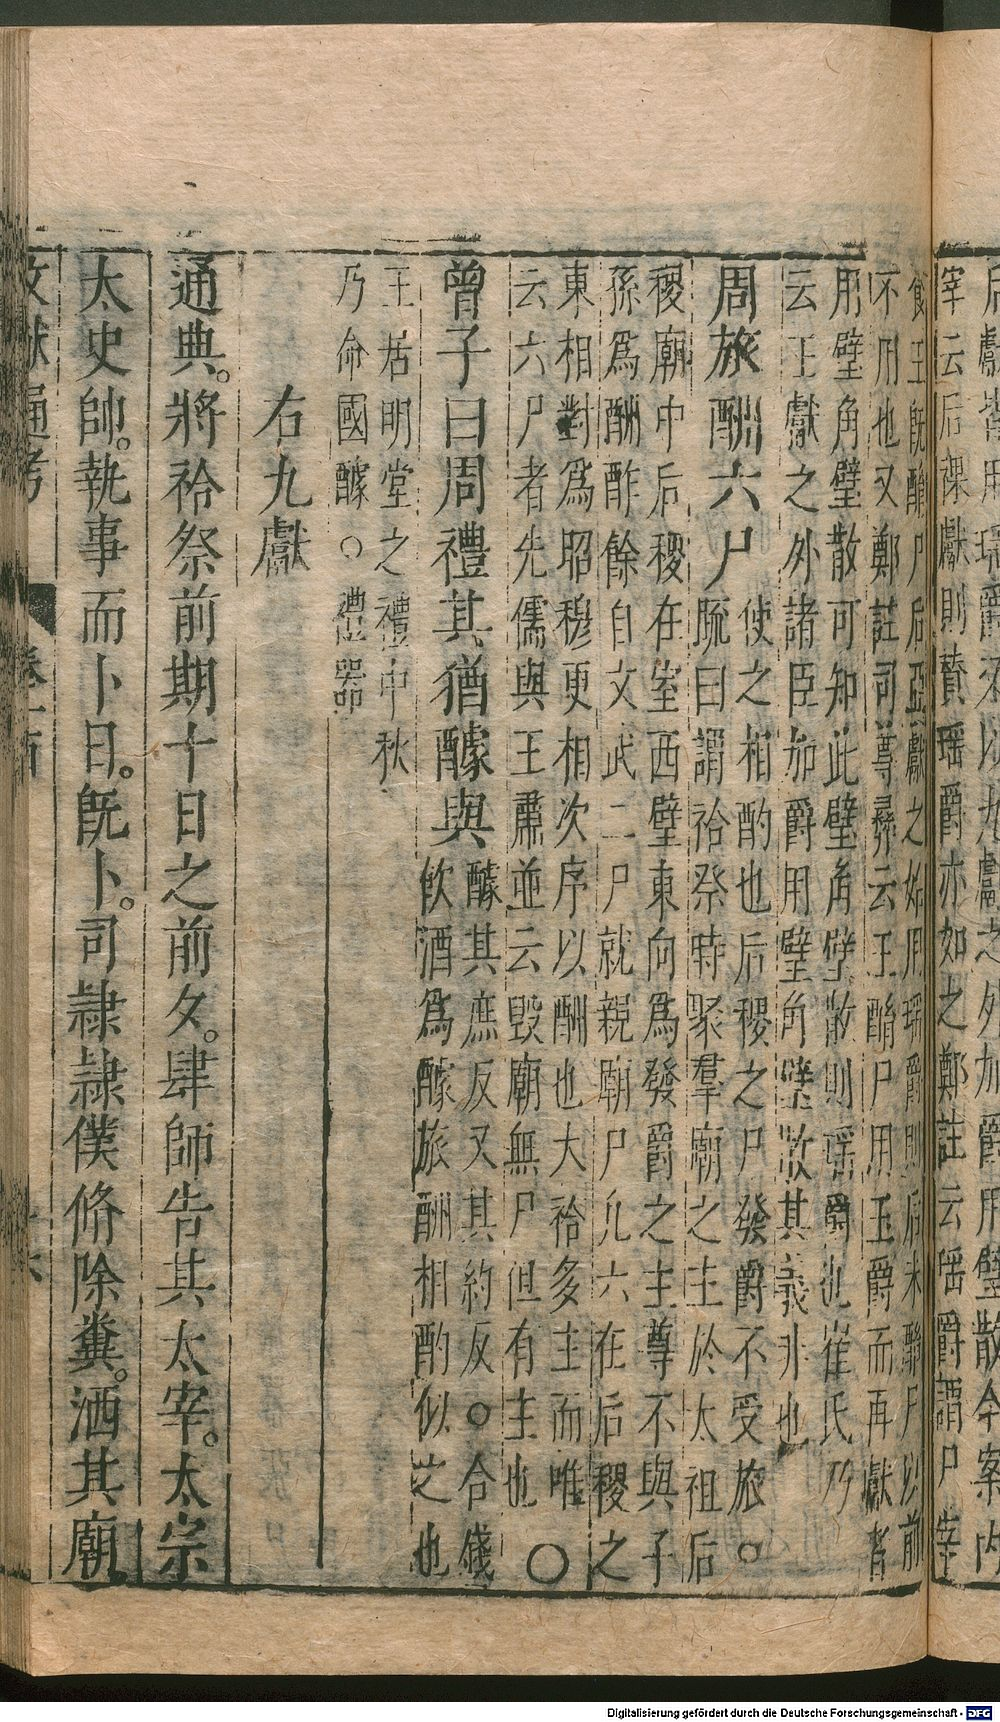 后獻皆用瑶爵又以九獻之外加爵用璧散今案内
宰云后祼獻則贊瑶爵亦如之鄭註云瑶爵謂尸卒
食王既酳尸后亞獻之始用瑶爵則后未酳尸以前
不用也又鄭註司尊彞云王酳尸用玉爵而再獻者
用璧角璧散可知此璧角璧散則瑶爵也崔氏乃
云王獻之外諸臣加爵用璧角璧散其義非也
周旅酬六尸
使之相酌也后稷之尸發爵不受旅○
䟽曰謂祫祭時聚羣廟之主於太祖后
稷廟中后稷在室西壁東向爲發爵之主尊不與子
孫爲酬酢餘自文武二尸就親廟尸凡六在后稷之
東相對爲昭穆更相次序以酬也大祫多主而唯
云六尸者先儒與王肅並云毁廟無尸但有主也○
曾子曰周禮其猶醵與
醵其庶反又其約反○合錢
飲酒爲醵旅酬相酌似之也
王居明堂之禮中秋
乃命國醵○禮器
右九獻
通典。將祫祭前期十日之前夕。肆師告其太宰。太宗
太史帥。執事而卜日。既卜。司隷隷僕脩除糞。洒其廟
文獻通考
Digitalisierung gefördert durch die Deutsche Forschungsgemeinschaft - DFG